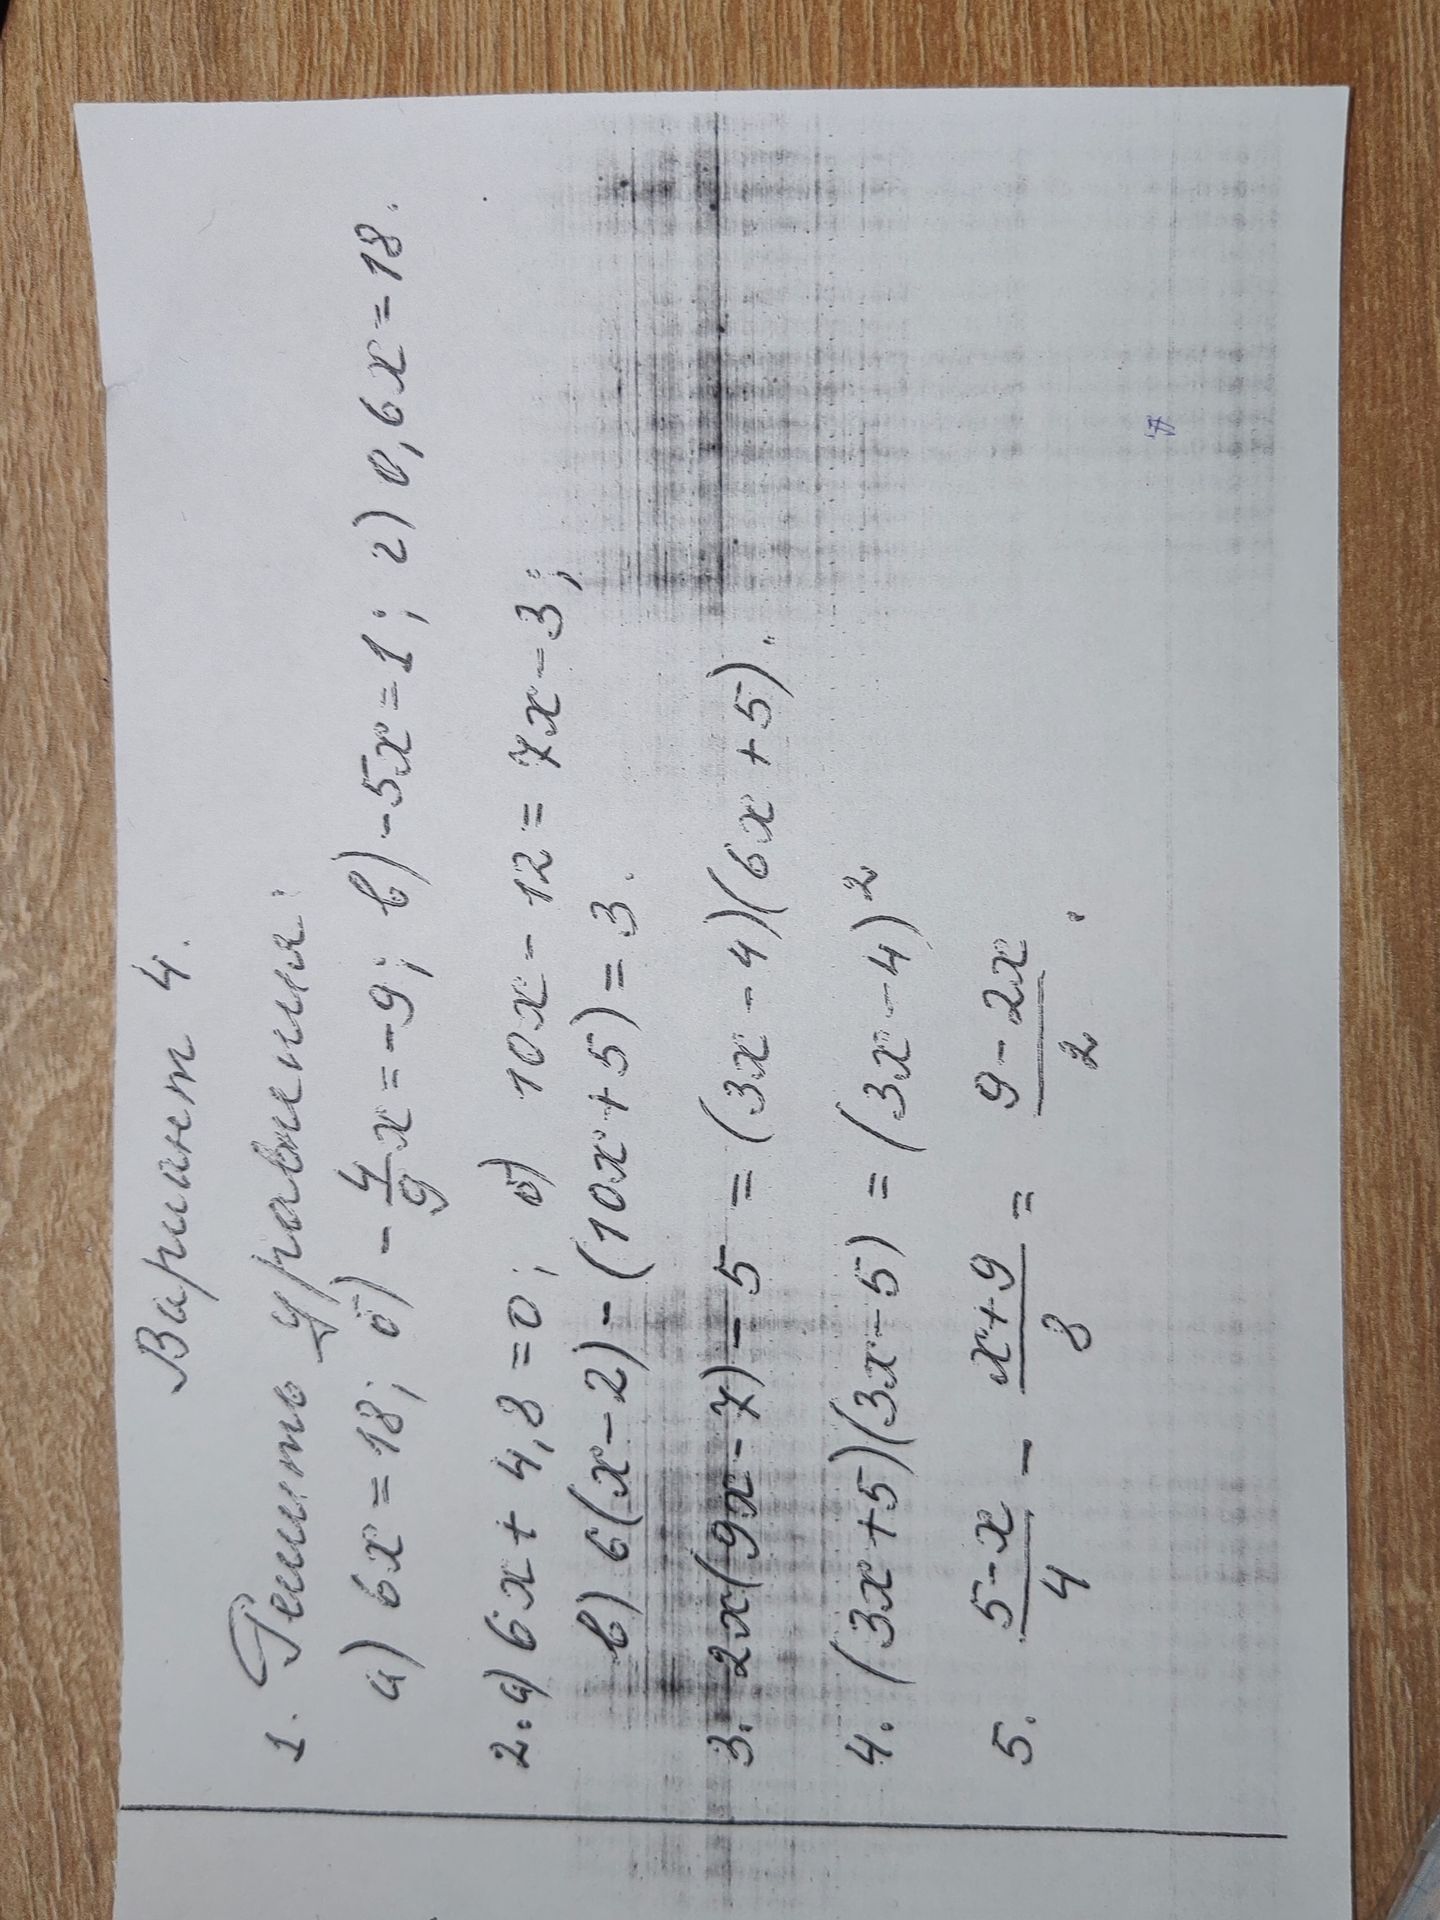 Вариант 4.
1. Решить уравнения:
а) 6x = 18; б) -4/9x = -9; в) -5x = 1; г) 0,6x = 18.
2. а) 6x + 4,8 = 0; б) 10x - 12 = 7x - 3;
в) 6(x - 2) - (10x + 5) = 3.
3. 2x(9x - 7) - 5 = (3x - 4)(6x + 5).
4. (3x + 5)(3x - 5) = (3x - 4)²
5. (5 - x)/4 - (x + 9)/8 = (9 - 2x)/2.